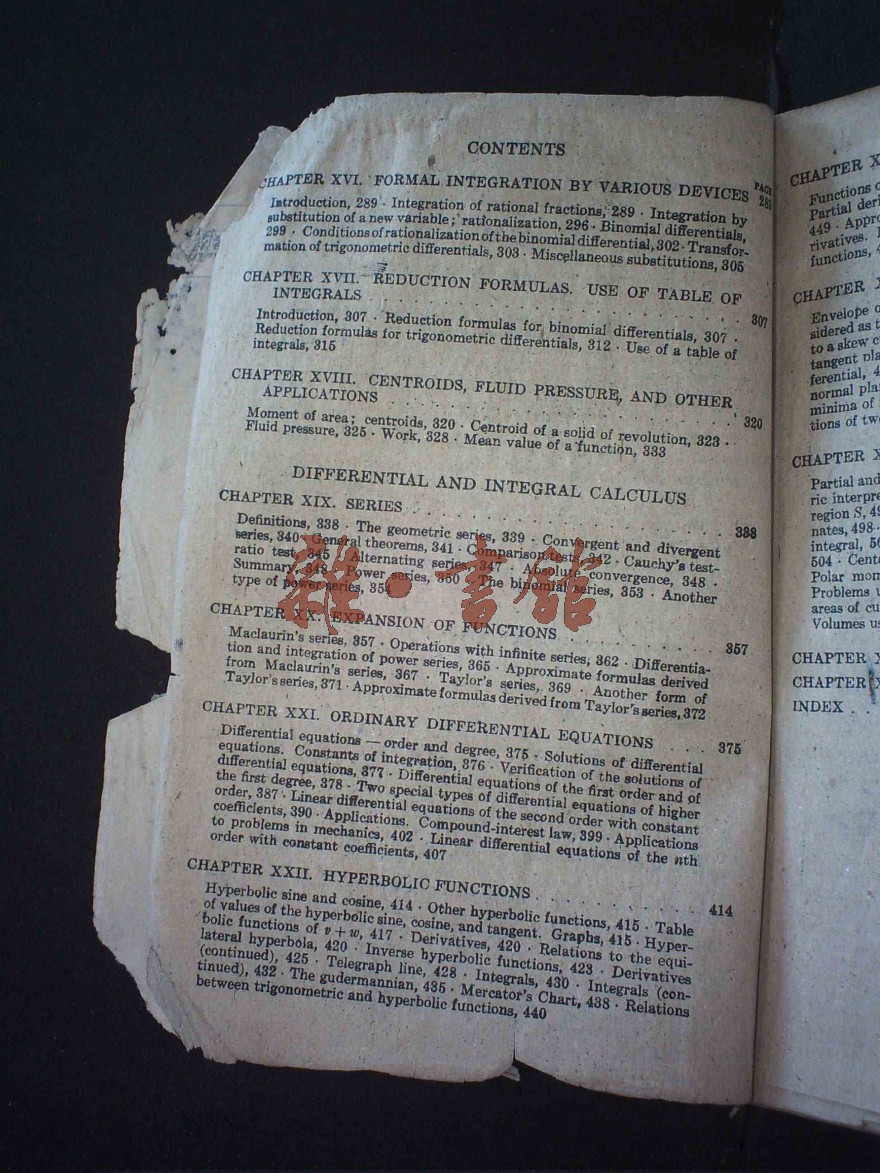 CONTENTS
CHAPTER XVI. FORMAL INTEGRATION BY VARIOUS DEVICES
PAGE
289
Introduction, 289 · Integration of rational fractions, 289 · Integration by
substitution of a new variable; rationalization, 296 · Binomial differentials,
299 · Conditions of rationalization of the binomial differential, 302 · Transfor-
mation of trigonometric differentials, 303 · Miscellaneous substitutions, 305
CHAPTER XVII. REDUCTION FORMULAS. USE OF TABLE OF
INTEGRALS . . . . . . . . . . . . . . . . . 307
Introduction, 307 · Reduction formulas for binomial differentials, 307 ·
Reduction formulas for trigonometric differentials, 312 · Use of a table of
integrals, 315
CHAPTER XVIII. CENTROIDS, FLUID PRESSURE, AND OTHER
APPLICATIONS . . . . . . . . . . . . . . . . 320
Moment of area; centroids, 320 · Centroid of a solid of revolution, 323 ·
Fluid pressure, 325 · Work, 328 · Mean value of a function, 333
DIFFERENTIAL AND INTEGRAL CALCULUS
CHAPTER XIX. SERIES . . . . . . . . . . . . . . . 338
Definitions, 338 · The geometric series, 339 · Convergent and divergent
series, 340 · General theorems, 341 · Comparison tests, 342 · Cauchy's test-
ratio test, 345 · Alternating series, 347 · Absolute convergence, 348 ·
Summary, 348 · Power series, 350 · The binomial series, 353 · Another
type of power series, 354
雜·書館
CHAPTER XX. EXPANSION OF FUNCTIONS . . . . . . . 357
Maclaurin's series, 357 · Operations with infinite series, 362 · Differentia-
tion and integration of power series, 365 · Approximate formulas derived
from Maclaurin's series, 367 · Taylor's series, 369 · Another form of
Taylor's series, 371 · Approximate formulas derived from Taylor's series, 372
CHAPTER XXI. ORDINARY DIFFERENTIAL EQUATIONS . . . 375
Differential equations — order and degree, 375 · Solutions of differential
equations. Constants of integration, 376 · Verification of the solutions of
differential equations, 377 · Differential equations of the first order and of
the first degree, 378 · Two special types of differential equations of higher
order, 387 · Linear differential equations of the second order with constant
coefficients, 390 · Applications. Compound-interest law, 399 · Applications
to problems in mechanics, 402 · Linear differential equations of the nth
order with constant coefficients, 407
CHAPTER XXII. HYPERBOLIC FUNCTIONS . . . . . . . . . 414
Hyperbolic sine and cosine, 414 · Other hyperbolic functions, 415 · Table
of values of the hyperbolic sine, cosine, and tangent. Graphs, 415 · Hyper-
bolic functions of v + w, 417 · Derivatives, 420 · Relations to the equi-
lateral hyperbola, 420 · Inverse hyperbolic functions, 423 · Derivatives
(continued), 425 · Telegraph line, 428 · Integrals, 430 · Integrals (con-
tinued), 432 · The gudermannian, 435 · Mercator's Chart, 438 · Relations
between trigonometric and hyperbolic functions, 440
CHAPTER
Functions
Partial
449 ·
rivatives.
functions,
CHAPTER
Envelope
sidered as
to a skew
tangent
ferential,
normal
minima of
tions of
CHAPTER
Partial and
ric
region S,
nates, 498 ·
integral,
504 ·
Polar
Problems
areas of
Volumes
CHAPTER
CHAPTER
INDEX . .